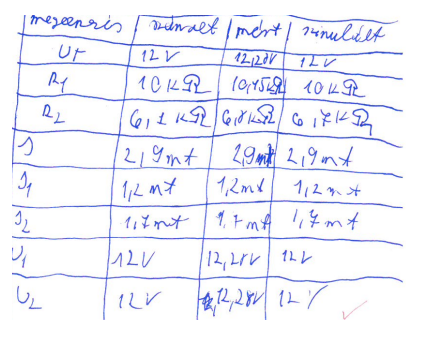 megnevezés számolt mért szimulált
Ut 12V 12,28V 12V
R1 10kΩ 10,15kΩ 10kΩ
R2 6,8kΩ
I 2,9mA 2,9mA 2,9mA
I1 1,2mA 1,2mA 1,2mA
I2 1,7mA 1,7mA 1,7mA
U1 12V 12,28V 12V
U2 12V 12,28V 12V